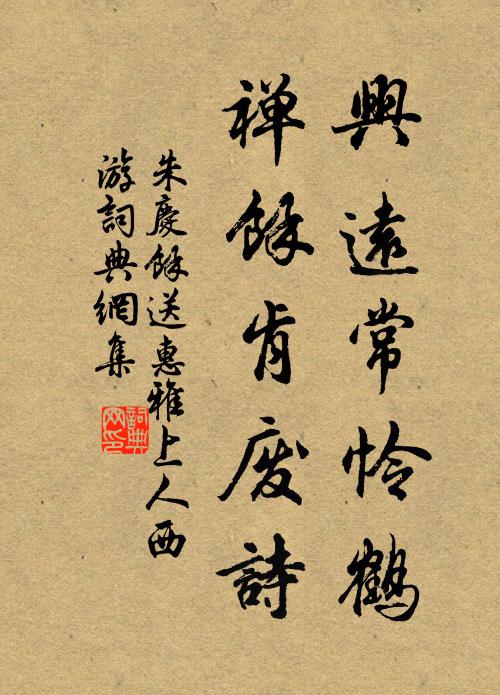 興遠常怜鶴
禪餘肯废詩
朱慶餘送惠雅上人西
游詞典網集
詞典网印